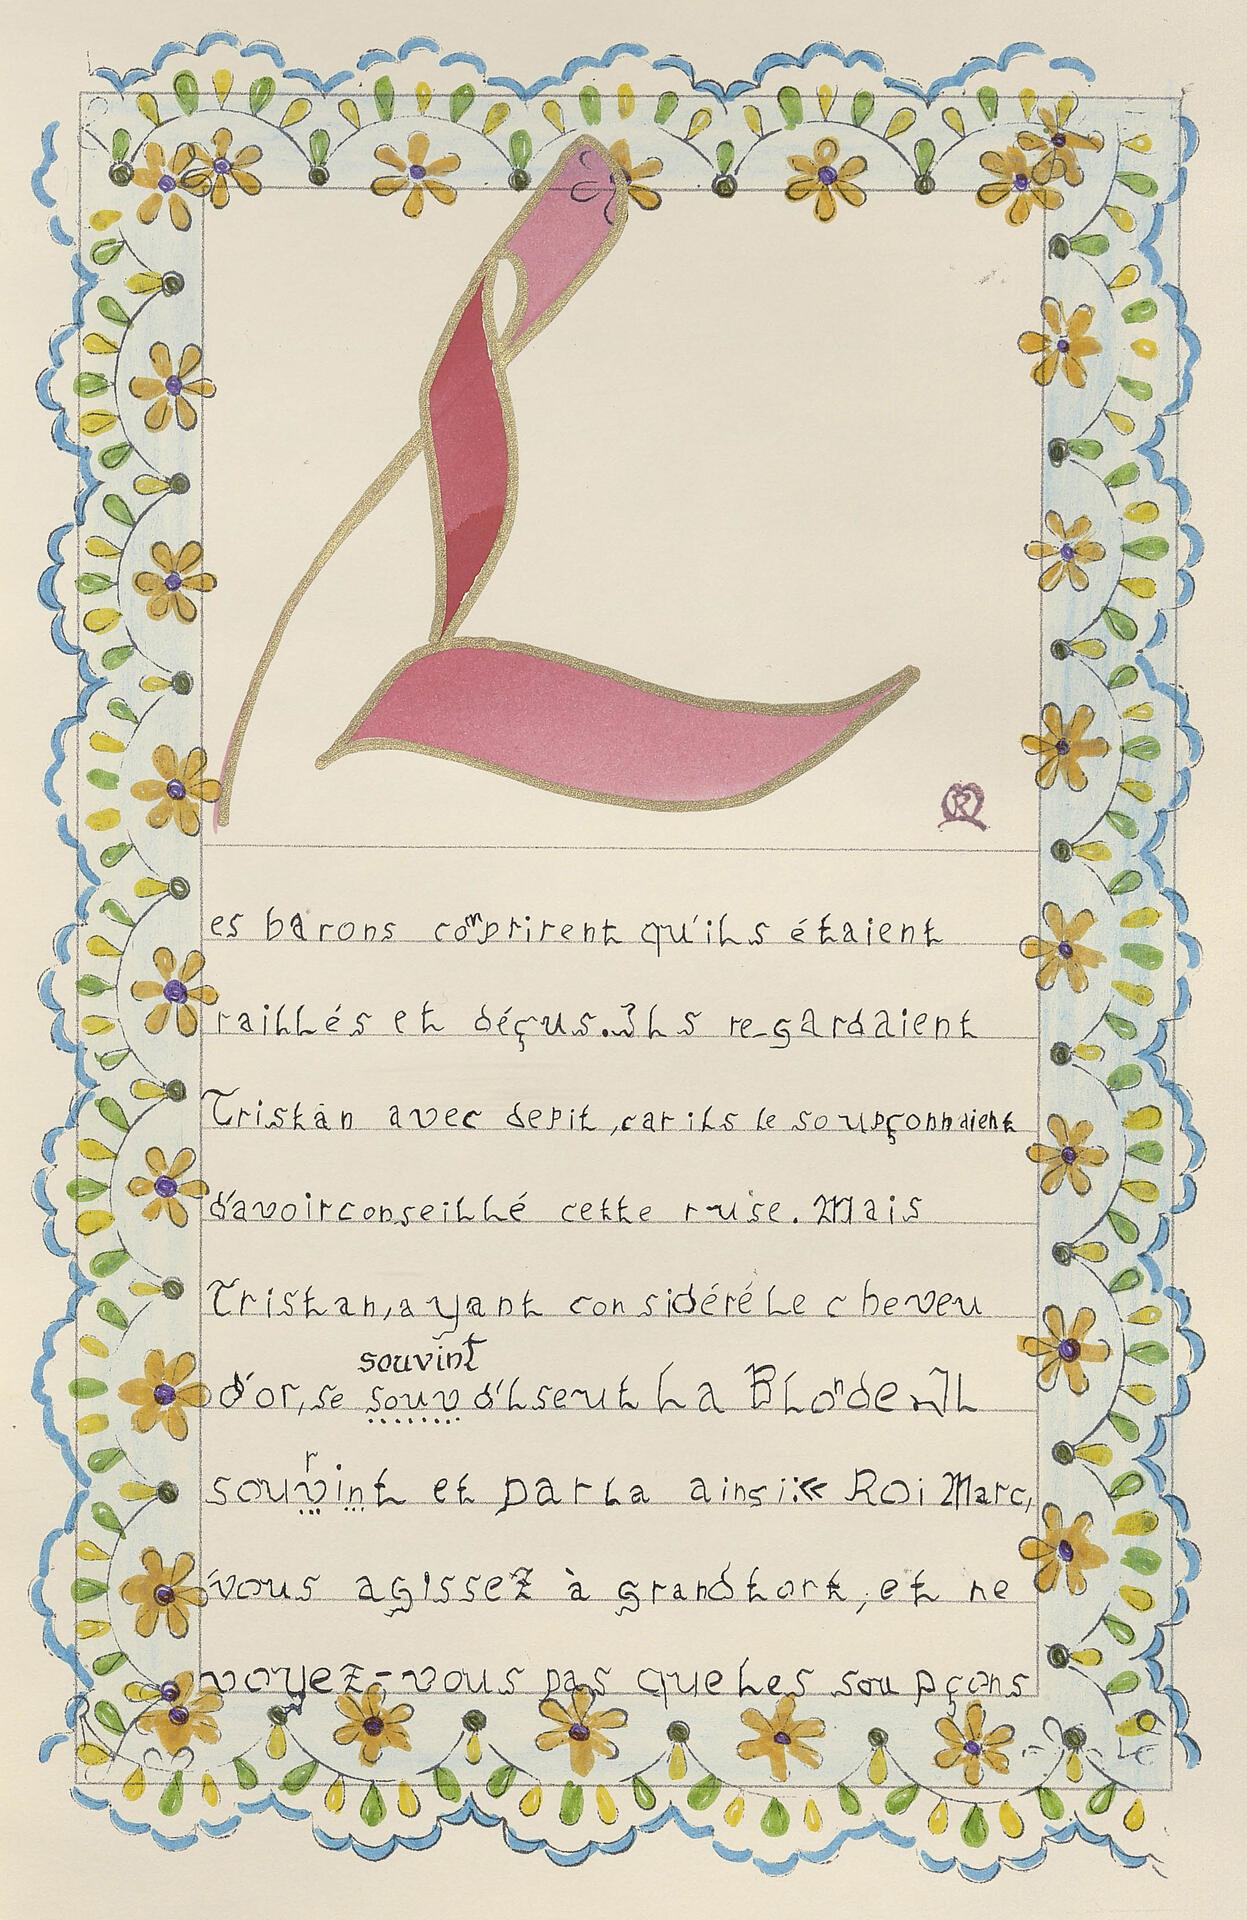 L
es barons comprirent qu'ils étaient
raillés et déçus. Ils regardaient
Tristan avec depit, car ils le soupçonnaient
d'avoir conseillé cette ruse. Mais
Tristan, ayant considéré le cheveu
souvint
d'or, se souv d'Iseut la Blonde. Il
r
souvint et parla ainsi: « Roi Marc,
vous agissez à grand tort, et ne
voyez-vous pas que les soupçons